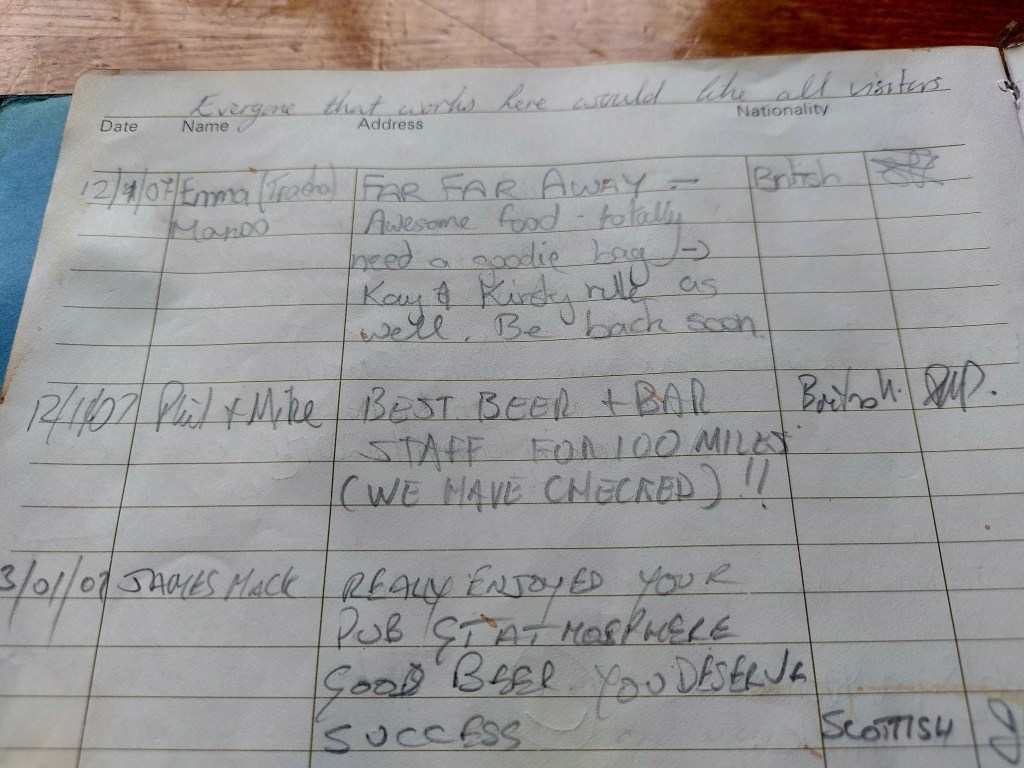 Everyone that works here would like all visitors
Date Name Address Nationality
12/1/07 Emma FAR FAR AWAY - British
Awesome food - totally
need a goodie bag ->
Kay & Kirsty rule as
well. Be back soon.
12/1/07 Phil + Mike BEST BEER + BAR British.
STAFF FOR 100 MILES
(WE HAVE CHECKED) !!
3/01/07 JAMES MACK REALLY ENJOYED YOUR
PUB GT ATMOSPHERE
GOOD BEER. YOU DESERVE
SUCCESS SCOTTISH